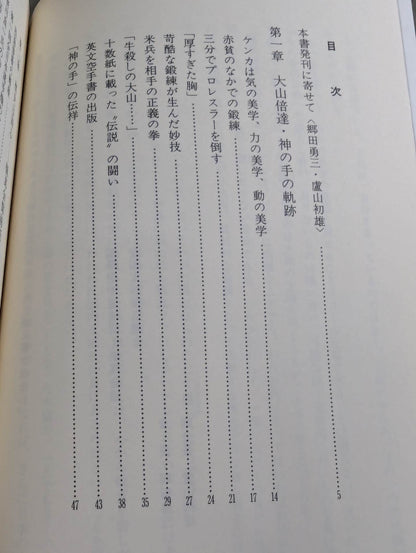 目次
本書発刊に寄せて〈郷田勇三・盧山初雄〉 5
第一章 大山倍達・神の手の軌跡
ケンカは気の美学、力の美学、動の美学 14
赤貧のなかでの鍛練 17
三分でプロレスラーを倒す 21
「厚すぎた胸」 24
苛酷な鍛練が生んだ妙技 27
米兵を相手の正義の拳 29
「牛殺しの大山……」 35
十数紙に載った〝伝説〟の闘い 38
英文空手書の出版 43
「神の手」の伝祥 47